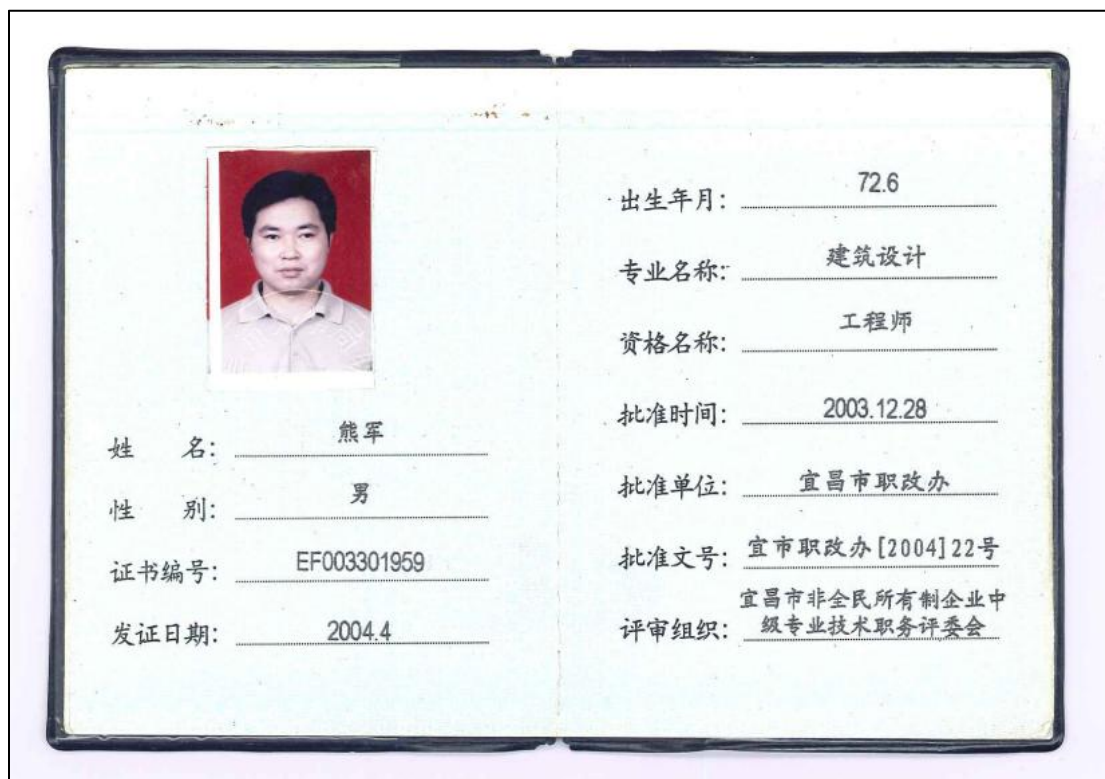 姓 名: 熊军
性 别: 男
证书编号: EF003301959
发证日期: 2004.4
出生年月: 72.6
专业名称: 建筑设计
资格名称: 工程师
批准时间: 2003.12.28
批准单位: 宜昌市职改办
批准文号: 宜市职改办[2004]22号
评审组织: 宜昌市非全民所有制企业中
级专业技术职务评委会